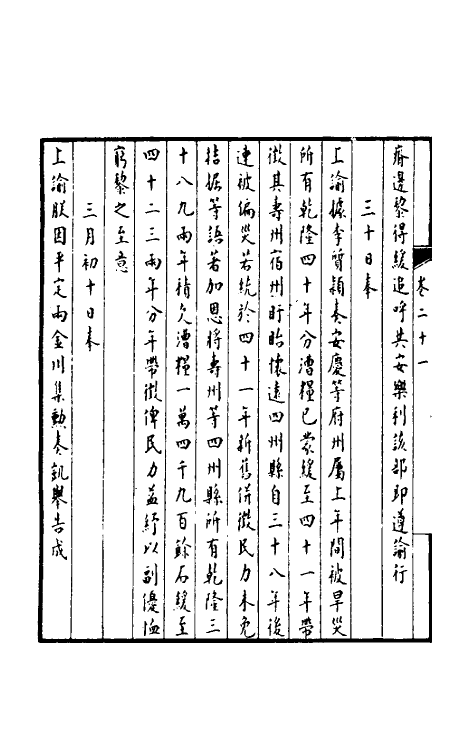 卷二十一
瘠邊黎得緩追呼共安樂利該部即遵諭行
三十日奉
上諭據李質穎奏安慶等府州屬上年間被旱災
所有乾隆四十年分漕糧已蒙緩至四十一年帶
徵其壽州宿州盱眙懷遠四州縣自三十八年後
連被偏災若統於四十一年新舊併徵民力未免
拮据等語若加恩將壽州等四州縣所有乾隆三
十八九兩年積欠漕糧一萬四千九百餘石緩至
四十二三兩年分年帶徵俾民力益紓以副優恤
窮黎之至意
三月初十日奉
上諭朕因平定兩金川集勲奏凱舉告成